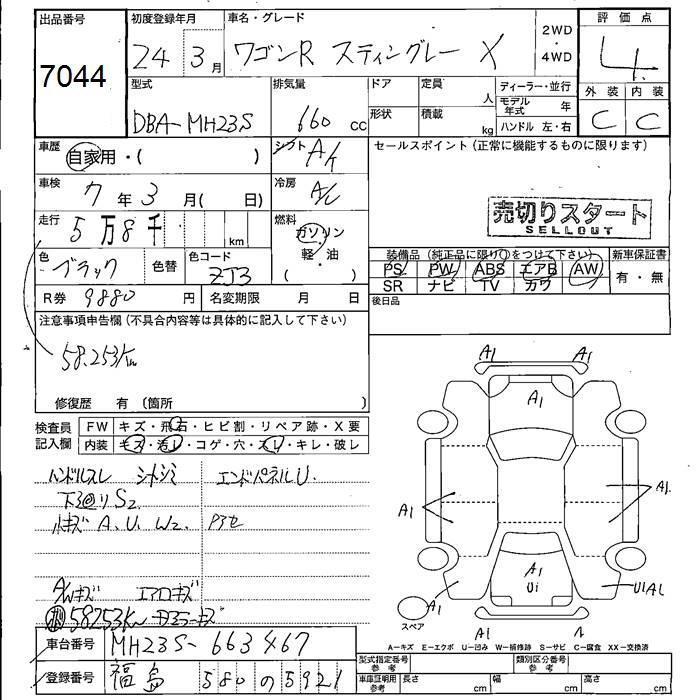 出品番号
7044
初度登録年月
24年3月
車名・グレード
ワゴンR スティングレー X
2WD・4WD
評価点
4
外装 内装
C C
型式
DBA-MH23S
排気量
660 cc
ドア
形状
定員 人
積載 kg
ディーラー・並行
モデル年式 年
ハンドル 左・右
車歴
自家用・( )
シフト
A/T
セールスポイント(正常に機能するものに限ります)
車検
7年3月( 日)
冷房
A/C
売切りスタート
SELLOUT
走行
5万8千 km
燃料
ガソリン・軽油
( )
色
ブラック
色替
色コード
ZJ3
装備品(純正品に限り○をつけて下さい)
PS PW ABS エアB AW
SR ナビ TV カワ
新車保証書
有・無
R券 9880円
名変期限 月 日
後日品
注意事項申告欄(不具合内容等は具体的に記入して下さい)
58,253Km
修復歴 有 (箇所 )
検査員記入欄
FW キズ・飛石・ヒビ割・リペア跡・X要
内装 キズ・汚レ・コゲ・穴・スレ・キレ・破レ
ハンドルスレ シートシミ エンドパネルU.
下廻りS2
小キズ A、U、W2
A/Wキズ エアロキズ
58253Km ドアミラーキズ
A1 A1
A1
A1 A1
A1
U1
A1 U1 A1
スペア
A1 A1
A－キズ E－エクボ U－凹み W－補修跡 S－サビ C－腐食 XX－交換済
車台番号
MH23S-663467
型式指定番号 参考
類別区分番号 参考
登録番号
福島 580 の 5921
車庫証明用 参考
長さ cm 幅 cm 高さ cm